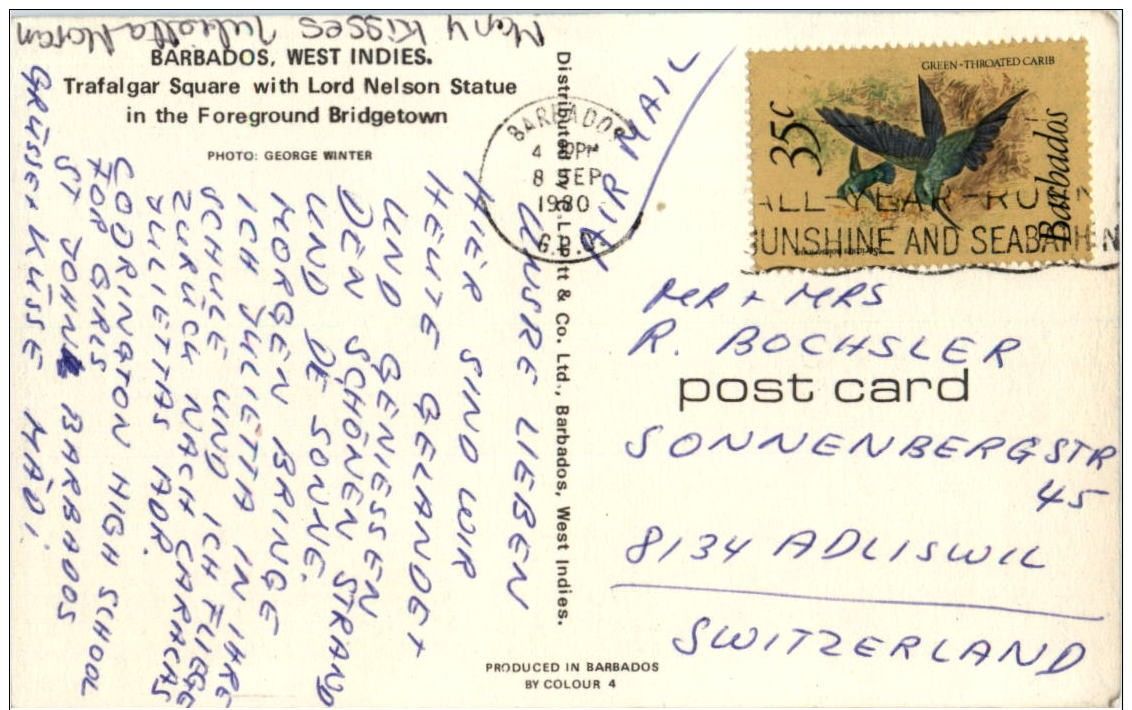 BARBADOS, WEST INDIES.
Trafalgar Square with Lord Nelson Statue
in the Foreground Bridgetown
PHOTO: GEORGE WINTER
UNSRE LIEBEN
HIER SIND WIR
HEUTE GELANDET
UND GENIESSEN
DEN SCHÖNEN STRAND
UND DE SONNE.
MORGEN BRINGE
ICH JULIETTA IN IHRE
SCHULE UND ICH FLIEGE
ZURÜCK NACH CARACAS
JULIETTAS ADR.
CODRINGTON HIGH SCHOOL
FOR GIRLS
ST JOHN BARBADOS
GRÜSSE + KÜSSE MÄDI.
Many Kisses Julietta Moran
Distributed by S.L. Pitt & Co. Ltd., Barbados, West Indies.
AIR MAIL
BARBADOS
8 SEP
1980
G.P.O.
GREEN-THROATED CARIB
35c
Barbados
ALL-YEAR-ROUN
SUNSHINE AND SEABATHIN
MR + MRS
R. BOCHSLER
post card
SONNENBERGSTR
45
8134 ADLISWIL
SWITZERLAND
PRODUCED IN BARBADOS
BY COLOUR 4